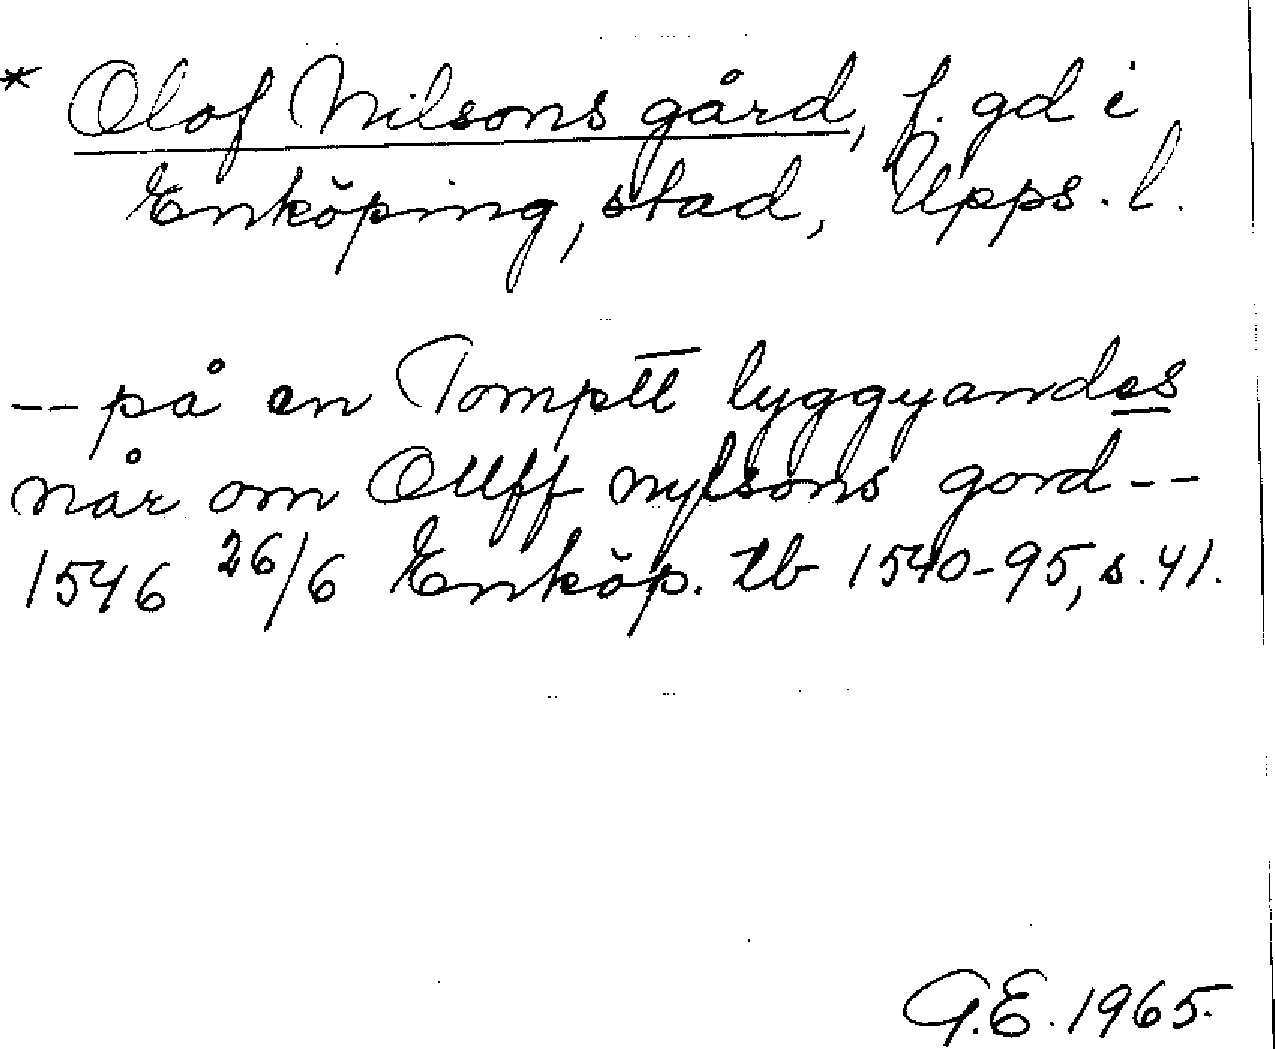 * Olof Nilsons gård, f. gd i
Enköping, stad, Upps. l.
-- på en Tomptt lyggyandes
når om Olleff nylsons gord --
1546 26/6 Enköp. tb 1540-95, s. 41.
G.E. 1965.